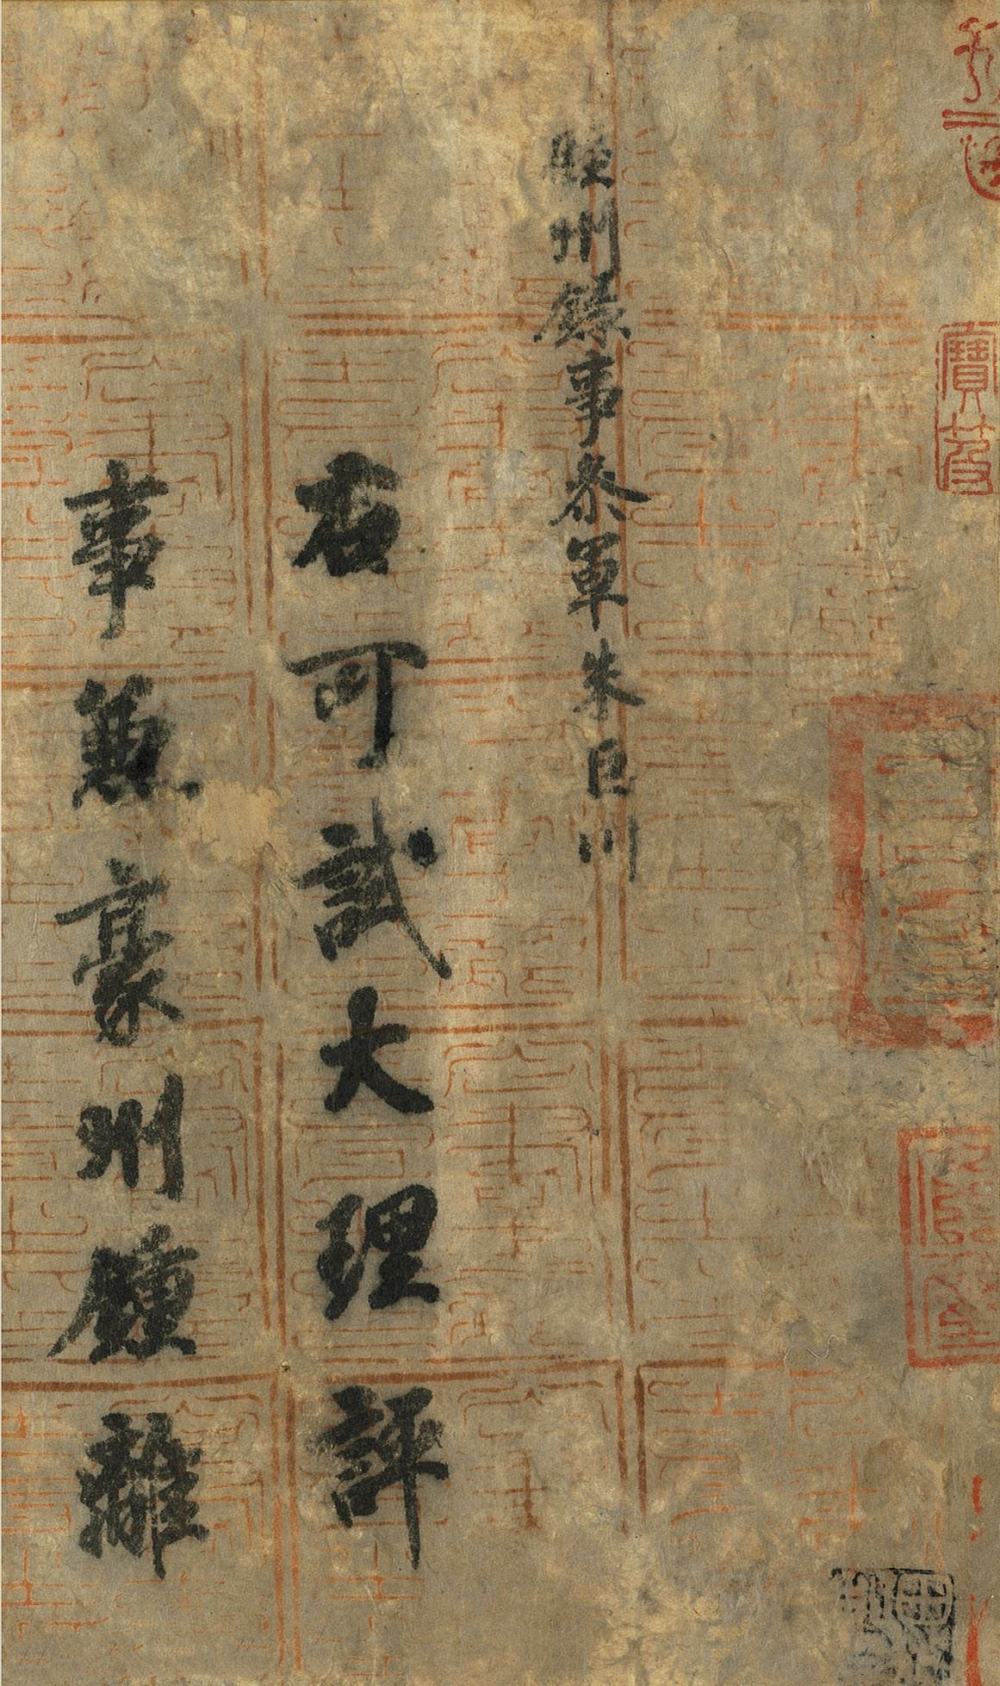 睦州錄事參軍朱巨川
右可試大理評
事兼豪州鍾離
寶笈